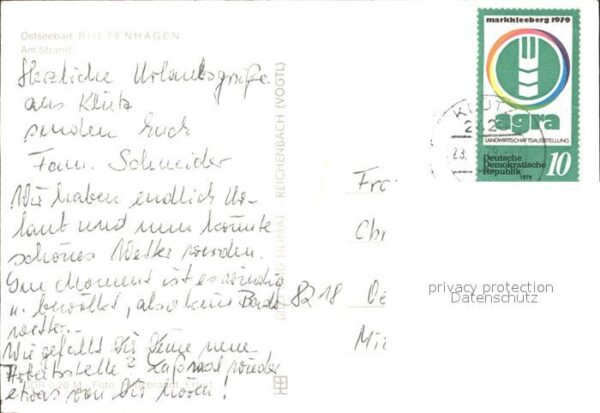 Ostseebad BOLTENHAGEN
Am Strand
Herzliche Urlaubsgrüße
aus Klütz
senden Euch
Fam. Schneider
Wir haben endlich Ur-
laub und nun könnte
schönes Wetter werden.
Im Moment ist es windig
u. bewölkt, also kein Bade
wetter.
Wie gefällt Dir Deine neue
Arbeitsstelle? Laß mal wieder
etwas von Dir hören!
REICHENBACH (VOGTL)
BILD UND HEIMAT
markkleeberg 1979
agra
LANDWIRTSCHAFTSAUSSTELLUNG
Deutsche
Demokratische
Republik
1979
10
KLÜTZ
242
23.
Fra
Chr
8218
Mi
privacy protection
Datenschutz